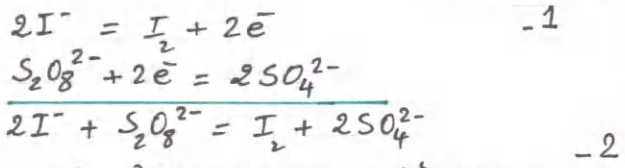 2I⁻ = I₂ + 2e⁻ -1
S₂O₈²⁻ + 2e⁻ = 2SO₄²⁻
2I⁻ + S₂O₈²⁻ = I₂ + 2SO₄²⁻
-2